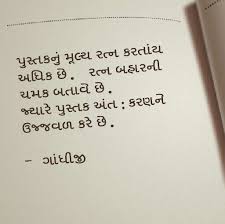 પુસ્તકનું મૂલ્ય રત્ન કરતાંય
અધિક છે. રત્ન બહારની
ચમક બતાવે છે.
જ્યારે પુસ્તક અંત:કરણને
ઉજ્જવળ કરે છે.
- ગાંધીજી